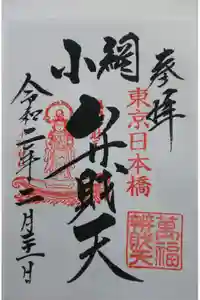 奉拝
東京日本橋
小網
弁財天
令和二年二月
萬福
辨財天